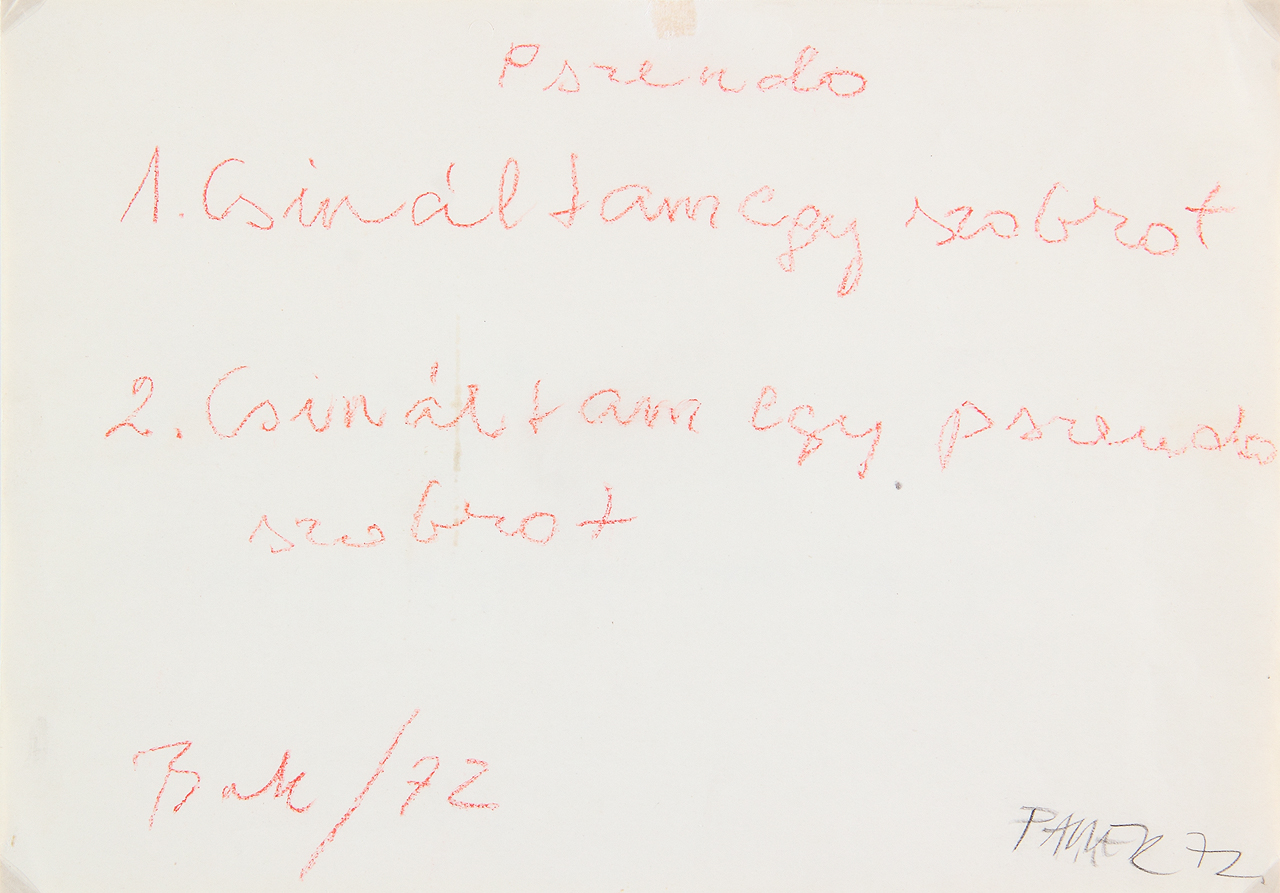 Pszeudo
1. Csináltam egy szobrot
2. Csináltam egy pszeudo
szobrot
Bak / 72
PAUER 72.